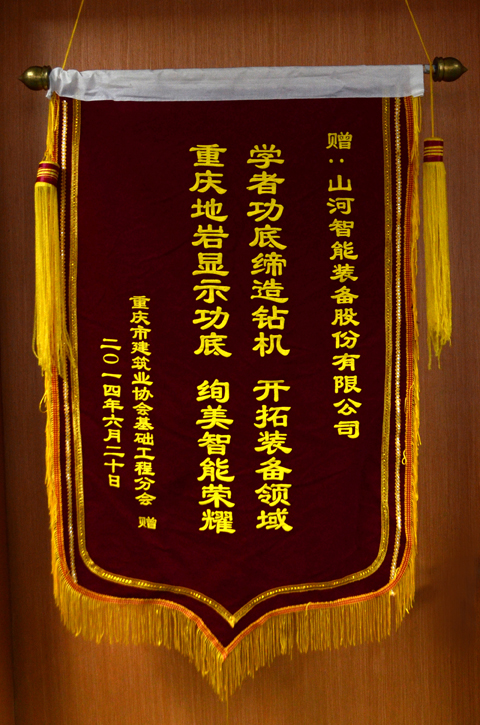 赠：山河智能装备股份有限公司
学者功底缔造钻机 开拓装备领域
重庆地岩显示功底 绚美智能荣耀
重庆市建筑业协会基础工程分会 赠
二〇一四年六月二十日